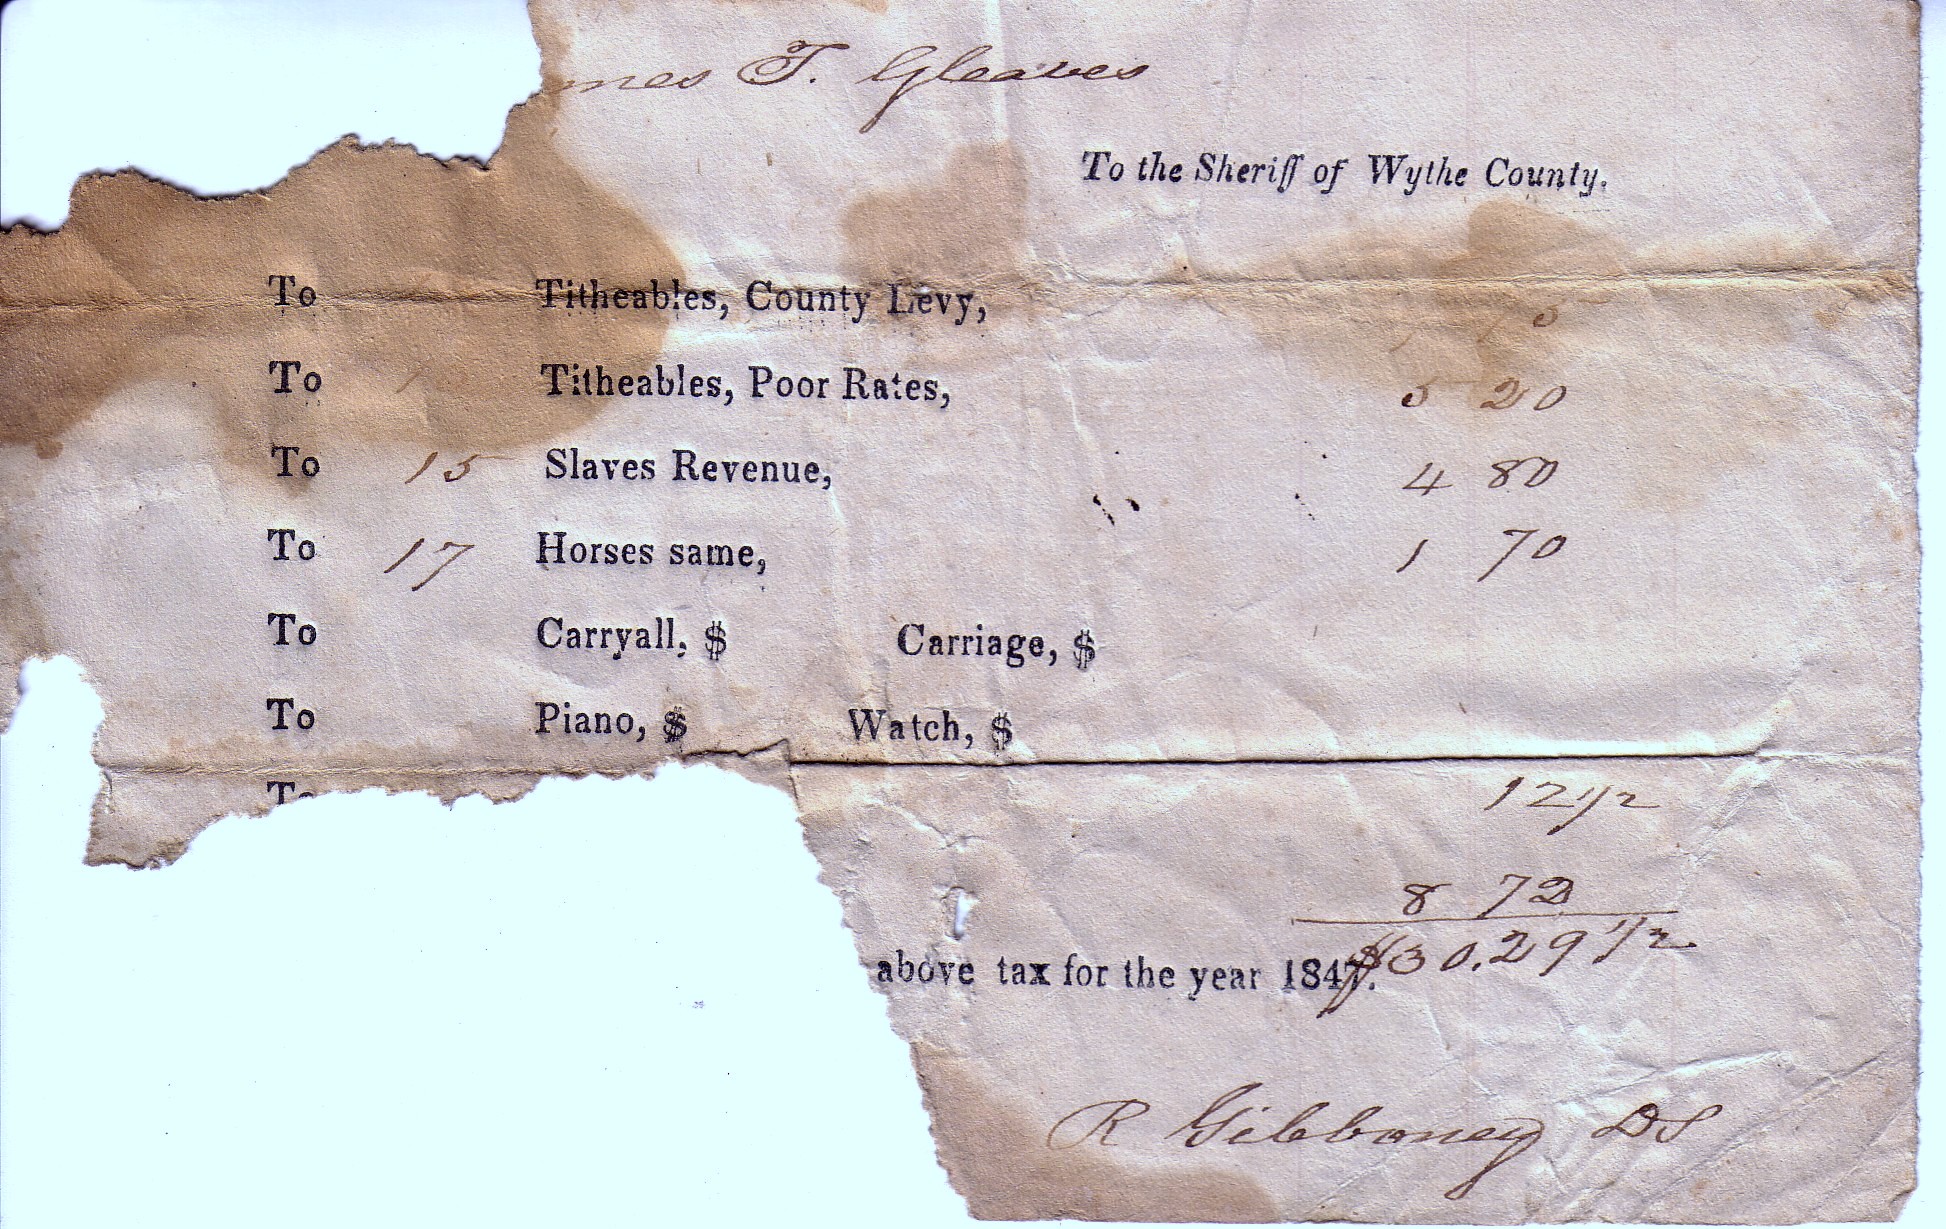 mes T. Gleaves
To the Sheriff of Wythe County.
To Titheables, County Levy,
To Titheables, Poor Rates, 5 20
To 15 Slaves Revenue, 4 80
To 17 Horses same, 1 70
To Carryall, $ Carriage, $
To Piano, $ Watch, $
To 12 1/2
8 72
$30.29 1/2
above tax for the year 1847.
R Gibboney DS